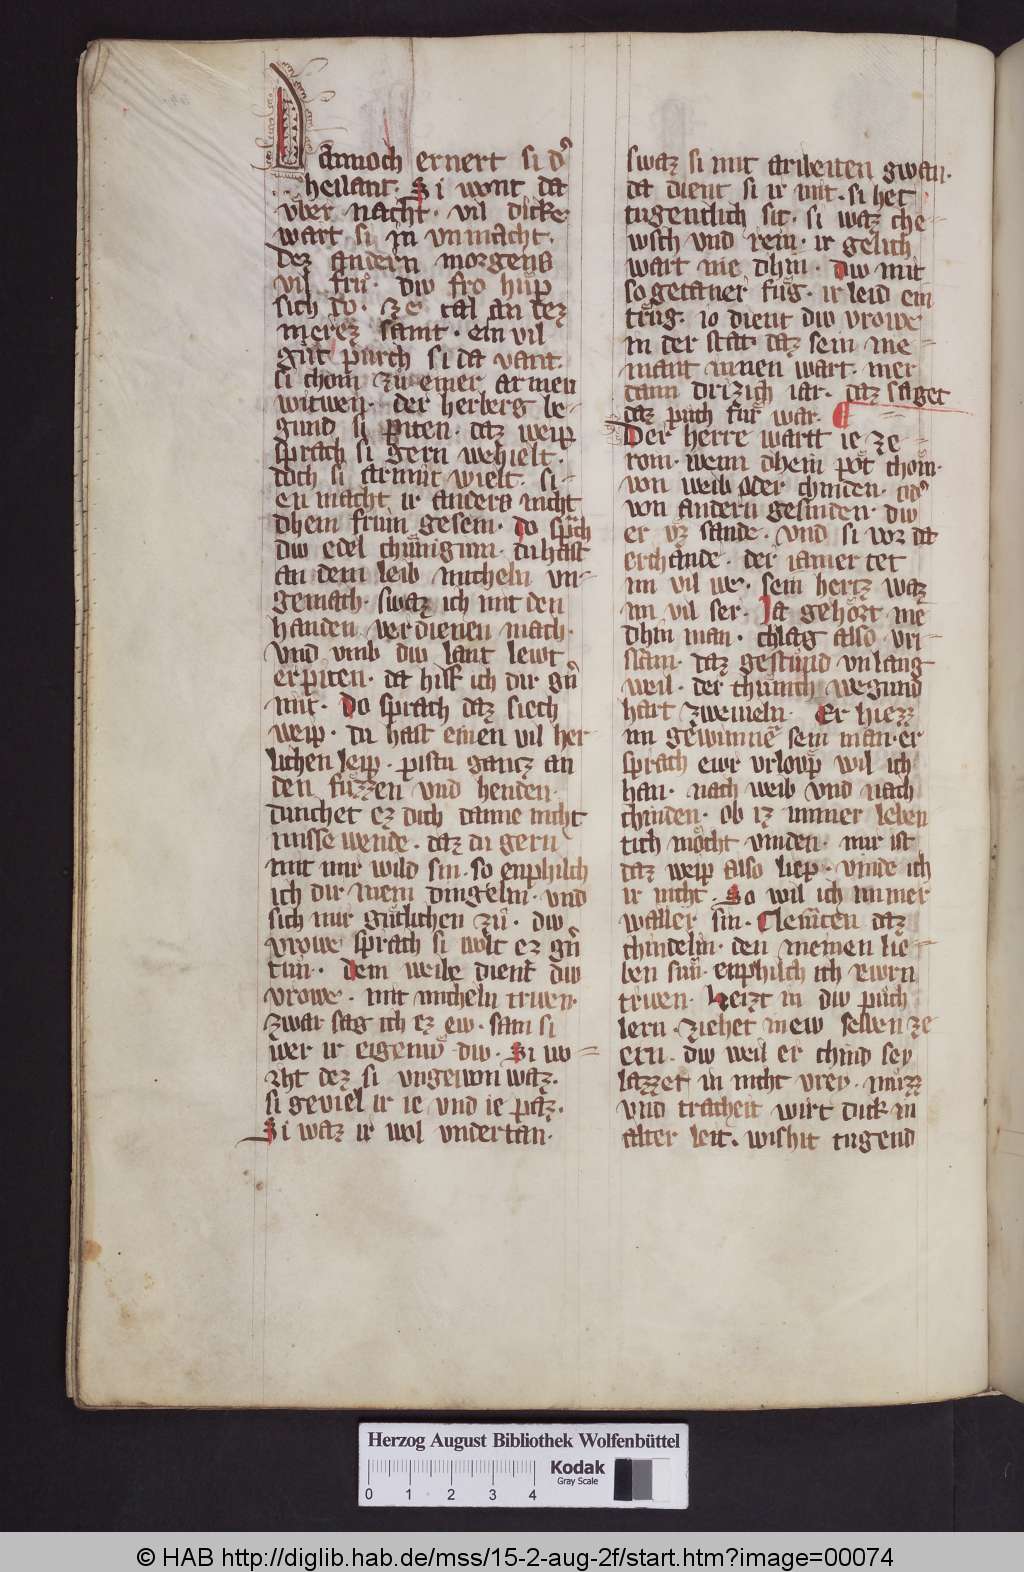 Dannoch ernert si d᾽
heilant. Si wont da
vͤber nacht. vil dicke
wart si in vnmacht.
Dez andern morgens
vil frů. diw fro huͤp
sich do. ze tal an dez
merez samt. ein vil
gůt purch si da vant.
si chom zů einer armen
witwen. der herberg be=
gund si piten. daz weip
sprach si gern wehielt.
doch si armůt wielt. si=
en macht ir anders nicht
dhein frum gesein. Do sprach
diw edel chunigunn. du hast
an dem leib micheln vn=
gemach. swaz ich mit den
handen verdienen mach.
vnd vmb diw lant lewt
erpiten. da hilf ich dir gn̄
mit. Do sprach daz siech
weip. du hast einen vil her
lichen leip. pistu gancz an
den fuͤzzen vnd henden.
dunchet ez dich danne nicht
missewende. daz du gern
mit mir wild sin. so enphilch
ich dir mein dingelin. vnd
sich mir guͤtlichen zů. diw
vrowe sprach si wolt ez gn̄
tun. Dem weibe dient diw
vrowe. mit micheln triwen.
zwar sag ich ez ew. sam si
wer ir eigenw̄ diw. Si wo=
rht dez si vngewon waz.
si geviel ir ie vnd ie paz.
Si waz ir wol vndertan.
swaz si mit aribeiten gwan.
da dient si ir mit. si het
tugentlich sit. si waz che=
wsch vnd rein. ir gelich
wart nie dhin. Diw mit
so getaner fuͤg. ir leid ein
truͤg. io dient diw vrowe
in der stat daz sein nie=
mant innen wart. mer
dann drizich iar. daz saget
daz puch fuͤr war.
Der herre wartt ie ze=
rom. wenn dhein pot chom.
von weib oder chinden. od᾽
von andern gesinden. diw
er vz sande. vnd si vor da
erchande. der iamer tet
im vil we. sein hertz waz
im vil ser. Ja gehoͤrt nie
dhin man. chlag also vri=
slam. daz gestuͤnd vnlang
weil. der chuͤnich wegund
hart zweiueln. Er hiezz
im gewinnē sein man. er
sprach ewr vrloup wil ich
han. nach weib vnd nach
chinden. ob iz immer leben
tich moͤcht vinden. mir ist
daz weip also liep. vinde ich
ir nicht. So wil ich immer
waller sin. Clemten daz
chindelin. den meinen lie=
ben sun. enphilch ich ewrn
triwen. Heizt in diw puͤch
lern. ziehet in ew selben ze
ern. diw weil er chind sey
lazzet in nicht vrey. muͤzz
vnd tracheit wirt dick in
alter leit. wishit tugend
Herzog August Bibliothek Wolfenbüttel
Kodak
Gray Scale
0 1 2 3 4
© HAB http://diglib.hab.de/mss/15-2-aug-2f/start.htm?image=00074